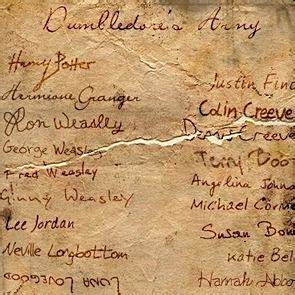 Dumbledore's Army
Harry Potter
Hermione Granger
Ron Weasley
George Weasley
Fred Weasley
Ginny Weasley
Lee Jordan
Neville Longbottom
LUNA LOVEGOOD
Justin Finc
Colin Creeve
Dennis Creeve
Terry Boo
Angelina Johns
Michael Corne
Susan Bon
Katie Bel
Hannah Abbo